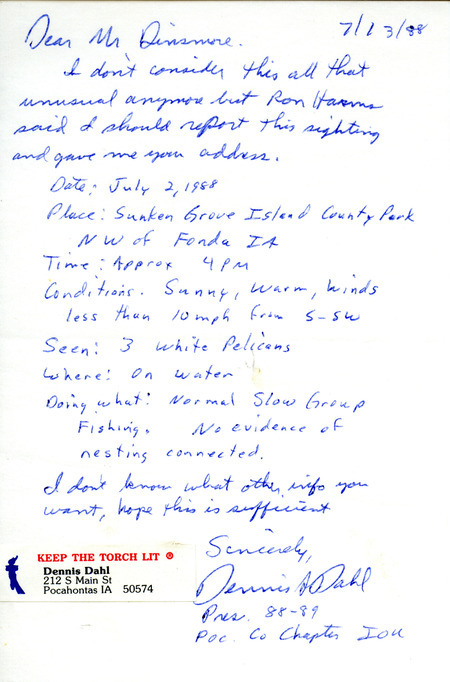 7/13/88
Dear Mr Dinsmore.
I don't consider this all that
unusual anymore but Ron Harms
said I should report this sighting
and gave me your address.
Date: July 2, 1988
Place: Sunken Grove Island County Park
NW of Fonda IA
Time: Approx 4 PM
Conditions. Sunny, Warm, Winds
less than 10 mph from S-SW
Seen: 3 White Pelicans
Where: On water
Doing what: Normal Slow Group
Fishing. No evidence of
nesting connected.
I don't know what other info you
want, hope this is sufficient
Sincerely,
Dennis A Dahl
Pres. 88-89
Poc. Co Chapter IOU
KEEP THE TORCH LIT
Dennis Dahl
212 S Main St
Pocahontas IA 50574